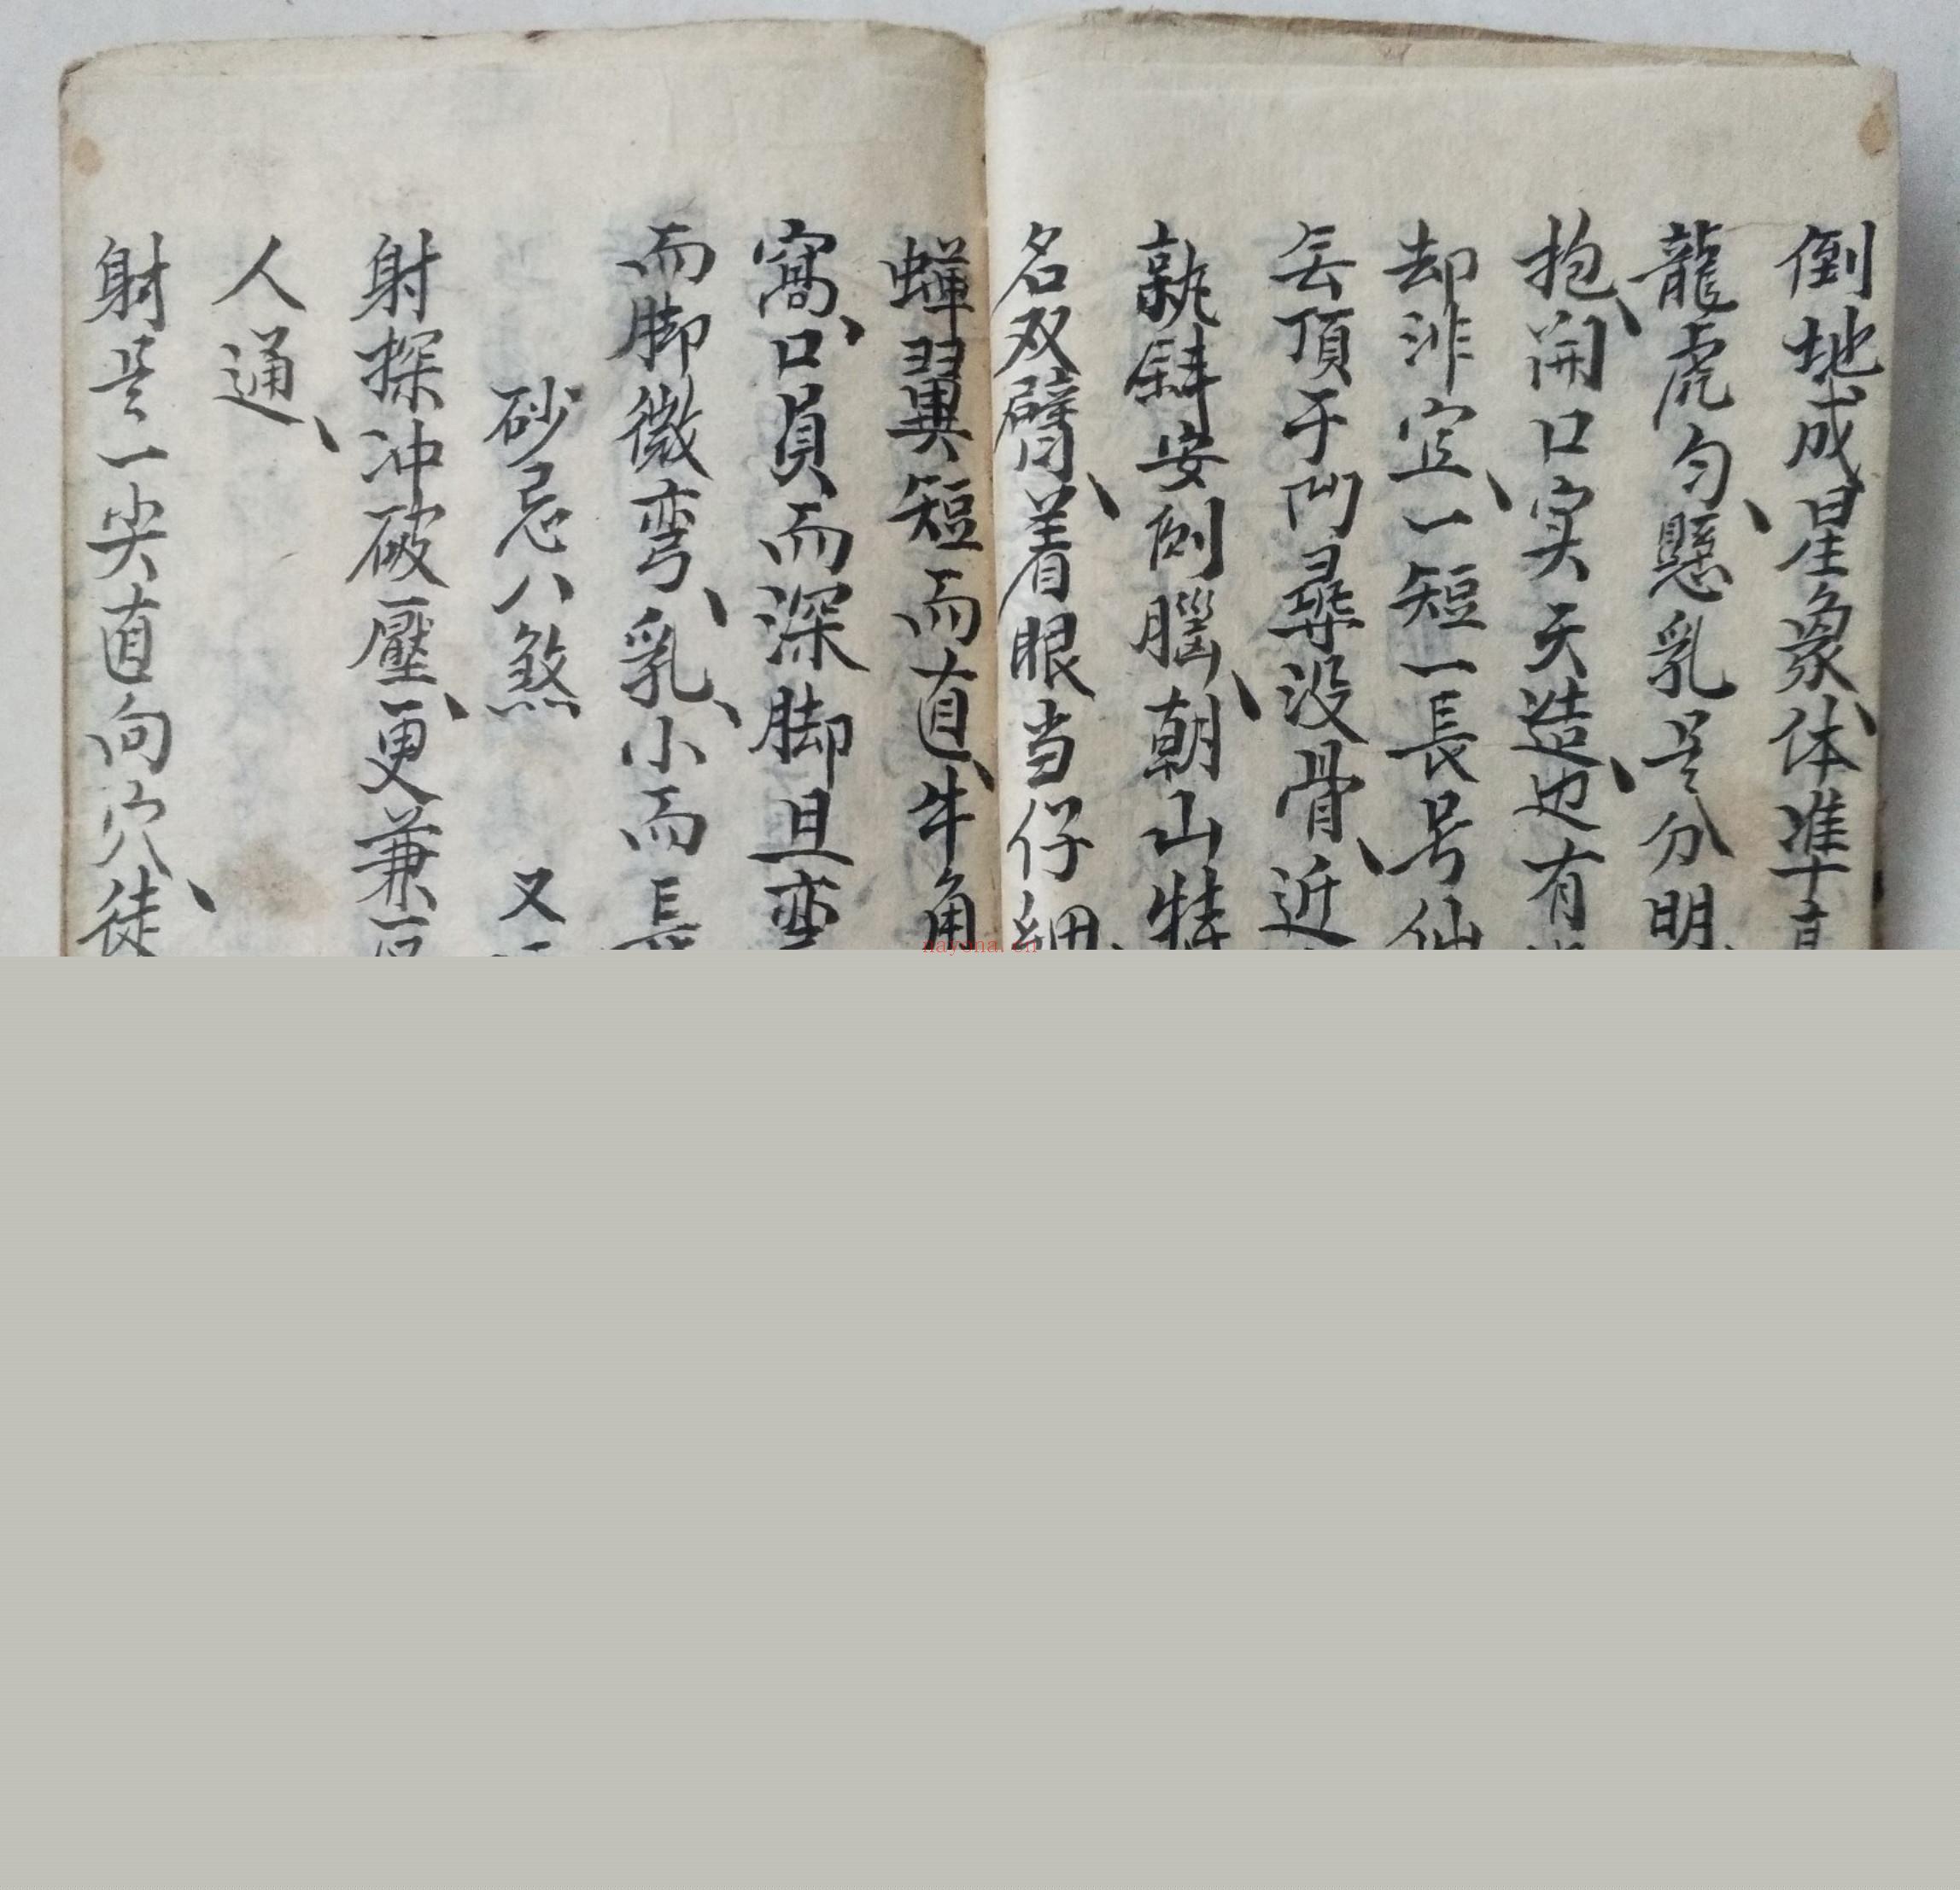 倒地成星象、体准
龍虎匀、懸乳是分明
抱、開口实天造、也有
却非宜、一短一長号
無頂子凹尋没骨、近
孰斜安倒腦、朝山特
名双臂、着眼当仔細
蝉翼短而直、牛角
窩、口員而深脚且弯
而脚微弯、乳、小而長
砂忌八煞 又
射探冲破壓、更兼
人通、
射是一尖直向穴、徒
nayona.cn